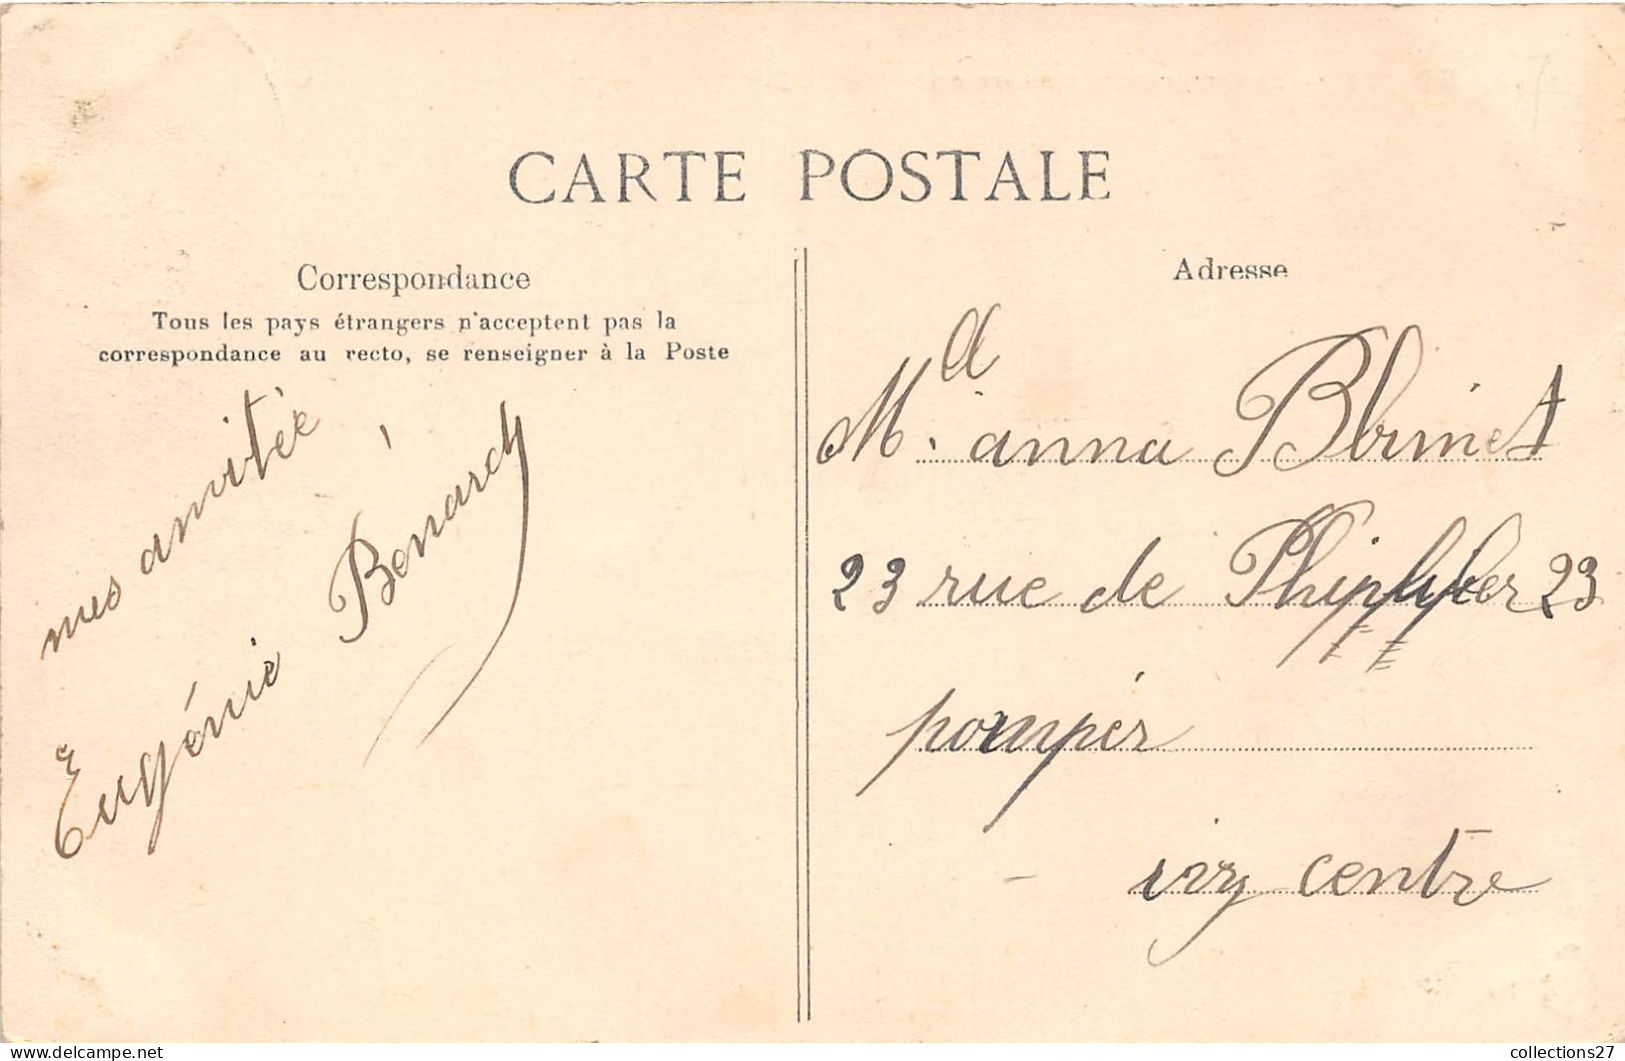 CARTE POSTALE
Correspondance
Tous les pays étrangers n'acceptent pas la
correspondance au recto, se renseigner à la Poste
mes amitée
Eugénie Bénard
Adresse
Md. anna
23 rue de 23
pompier
ivry centre
collections27